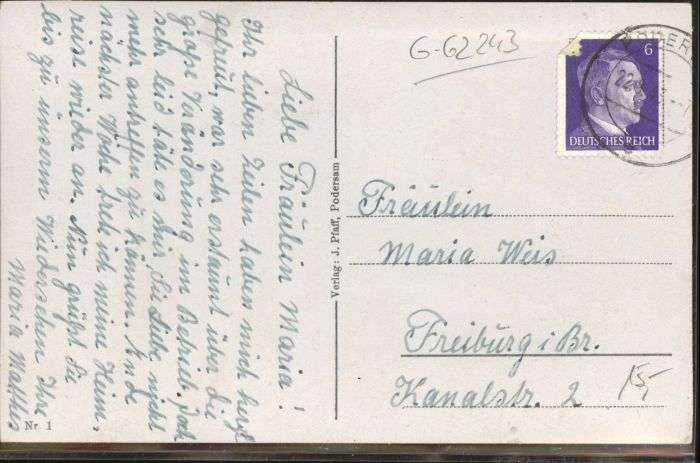 Liebe Fräulein Maria!
Ihr lieben Zeilen haben mich herzl
gefreut, war sehr erstaunt über die
große Veränderung im Betrieb. Jach
sehr leid täte es mir, Sie Liebe nicht
mehr antreffen zu können. Ende
nächster Woche tret ich meine Heim-
reise wieder an. Nun grüßt Sie
bis zu unserm Wiedersehen Ihre
Maria Matthes
Nr 1
Verlag: J. Pfaff, Podersam
G-62243
6
DEUTSCHES REICH
Fräulein
Maria Weis
Freiburg i Br.
Kanalstr. 2
15,-